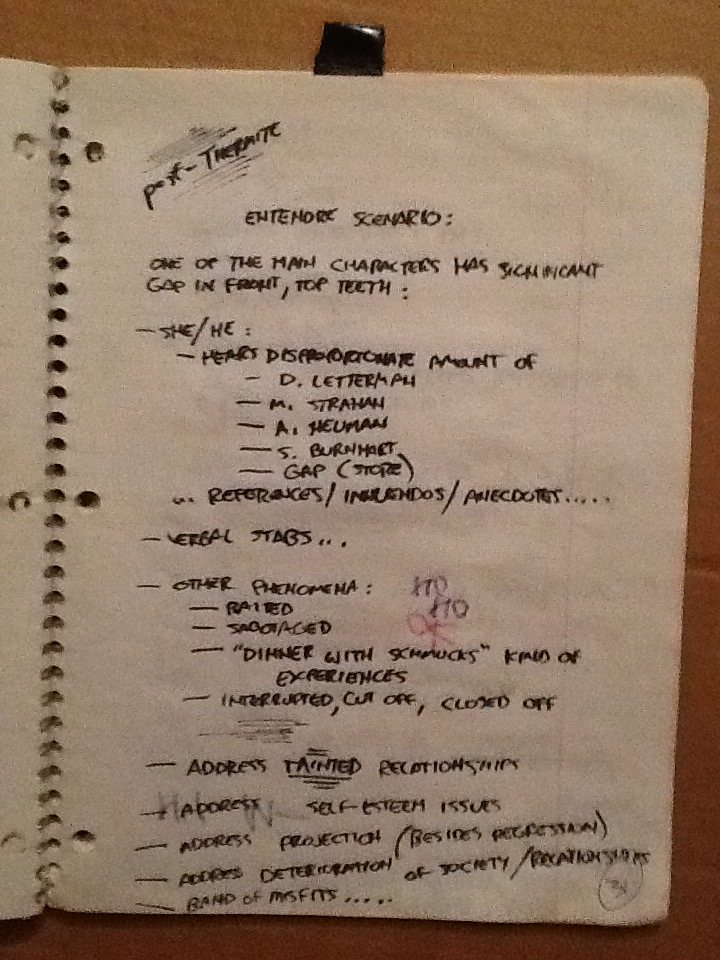 post-THERMITE
ENTENDRE SCENARIO:
ONE OF THE MAIN CHARACTERS HAS SIGNIFICANT
GAP IN FRONT, TOP TEETH:
— SHE/HE:
— HEARS DISPROPORTIONATE AMOUNT OF
— D. LETTERMAN
— M. STRAHAN
— A. NEUMAN
— S. BURNHART
— GAP (STORE)
... REFERENCES/INNUENDOS/ANECDOTES.....
— VERBAL STABS...
— OTHER PHENOMENA:
— BAITED
— SABOTAGED
— "DINNER WITH SCHMUCKS" KIND OF
EXPERIENCES
— INTERRUPTED, CUT OFF, CLOSED OFF
— ADDRESS TAINTED RELATIONSHIPS
— ADDRESS SELF-ESTEEM ISSUES
— ADDRESS PROJECTION (BESIDES REGRESSION)
— ADDRESS DETERIORATION OF SOCIETY/RELATIONSHIPS
— BAND OF MISFITS.....